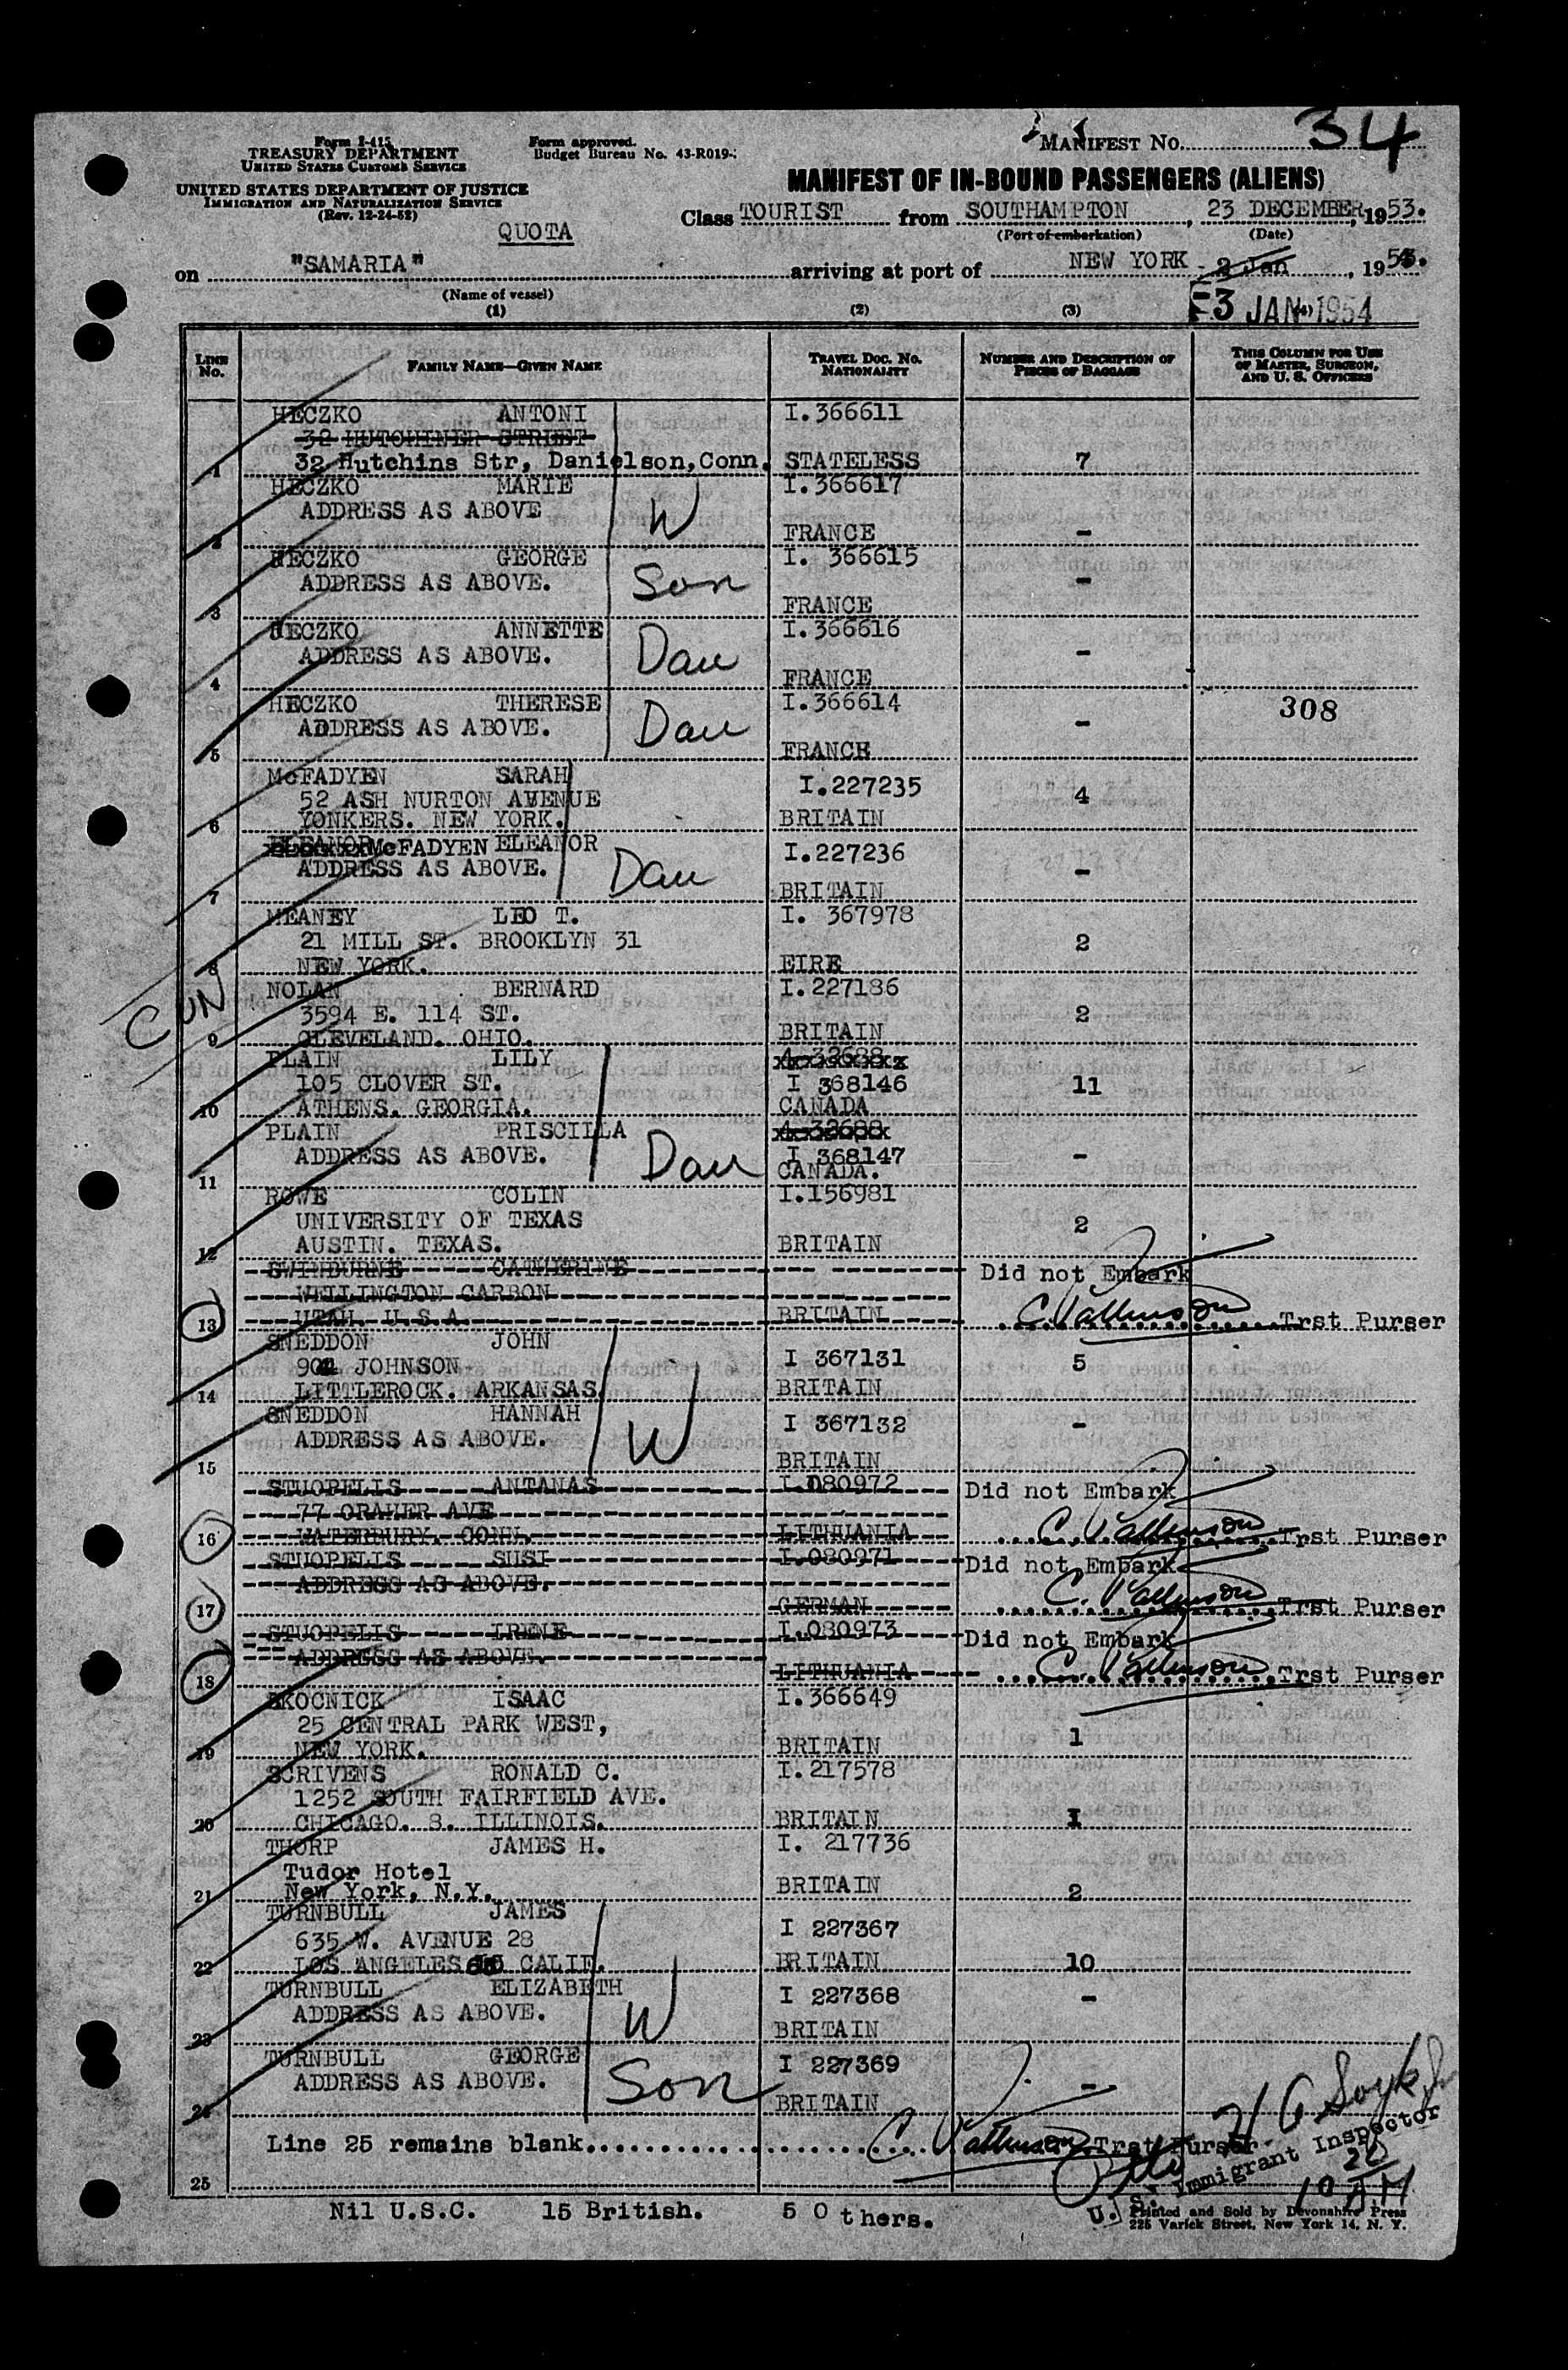 Form I-415
TREASURY DEPARTMENT
UNITED STATES CUSTOMS SERVICE
UNITED STATES DEPARTMENT OF JUSTICE
IMMIGRATION AND NATURALIZATION SERVICE
(Rev. 12-24-52)
Form approved.
Budget Bureau No. 43-R019-
MANIFEST No. 34
MANIFEST OF IN-BOUND PASSENGERS (ALIENS)
Class TOURIST from SOUTHAMPTON, 23 DECEMBER, 1953.
(Port of embarkation) (Date)
QUOTA
on "SAMARIA" arriving at port of NEW YORK - 2 Jan, 1954.
(Name of vessel)
-3 JAN 1954
(1) (2) (3) (4)
LINE No. FAMILY NAME—GIVEN NAME TRAVEL DOC. No. NATIONALITY NUMBER AND DESCRIPTION OF PIECES OF BAGGAGE THIS COLUMN FOR USE OF MASTER, SURGEON, AND U. S. OFFICERS
HECZKO ANTONI I.366611
32 HUTCHINER STREET
1 32 Hutchins Str, Danielson,Conn. STATELESS 7
HECZKO MARIE I.366617
ADDRESS AS ABOVE W
2 FRANCE -
HECZKO GEORGE I. 366615
ADDRESS AS ABOVE. Son -
3 FRANCE
HECZKO ANNETTE I.366616
ADDRESS AS ABOVE. Dau -
4 FRANCE
HECZKO THERESE I.366614 308
ADDRESS AS ABOVE. Dau -
5 FRANCE
McFADYEN SARAH I.227235
52 ASH NURTON AVENUE 4
6 YONKERS. NEW YORK. BRITAIN
McFADYEN ELEANOR I.227236
ADDRESS AS ABOVE. Dau -
7 BRITAIN
MEANEY LEO T. I. 367978
21 MILL ST. BROOKLYN 31 2
8 NEW YORK. EIRE
CUN
NOLAN BERNARD I.227186
3594 E. 114 ST. 2
9 CLEVELAND. OHIO. BRITAIN
PLAIN LILY A-32688
105 CLOVER ST. I 368146 11
10 ATHENS. GEORGIA. CANADA
PLAIN PRISCILLA A-32688
ADDRESS AS ABOVE. Dau I 368147 -
11 CANADA.
ROWE COLIN I.156981
UNIVERSITY OF TEXAS 2
12 AUSTIN. TEXAS. BRITAIN
SWINBURNE CATHERINE Did not Embark
WELLINGTON CARBON
13 UTAH. U.S.A. BRITAIN Trst Purser
SNEDDON JOHN I 367131 5
JOHNSON
14 LITTLEROCK. ARKANSAS. BRITAIN
SNEDDON HANNAH I 367132 -
ADDRESS AS ABOVE. W
15 BRITAIN
STUOPELIS ANTANAS I.080972 Did not Embark
77 ORAHER AVE
16 WATERBURY. CONN. LITHUANIA Trst Purser
STUOPELIS SUSI I.080971 Did not Embark
ADDRESS AS ABOVE.
17 GERMAN Trst Purser
STUOPELIS IRENE I.080973 Did not Embark
ADDRESS AS ABOVE.
18 LITHUANIA Trst Purser
SKOCNICK ISAAC I.366649
25 CENTRAL PARK WEST, 1
19 NEW YORK. BRITAIN
SCRIVENS RONALD C. I.217578
1252 SOUTH FAIRFIELD AVE.
20 CHICAGO. 8. ILLINOIS. BRITAIN I
THORP JAMES H. I. 217736
Tudor Hotel
21 New York, N.Y. BRITAIN 2
TURNBULL JAMES I 227367
635 W. AVENUE 28
22 LOS ANGELES CALIF. BRITAIN 10
TURNBULL ELIZABETH I 227368 -
ADDRESS AS ABOVE. W
23 BRITAIN
TURNBULL GEORGE I 227369 -
ADDRESS AS ABOVE. Son
24 BRITAIN
Line 25 remains blank. Trst Purser
U. S. Immigrant Inspector
25
Nil U.S.C. 15 British. 5 Others.
Printed and Sold by Devonshire Press
225 Varick Street, New York 14, N. Y.